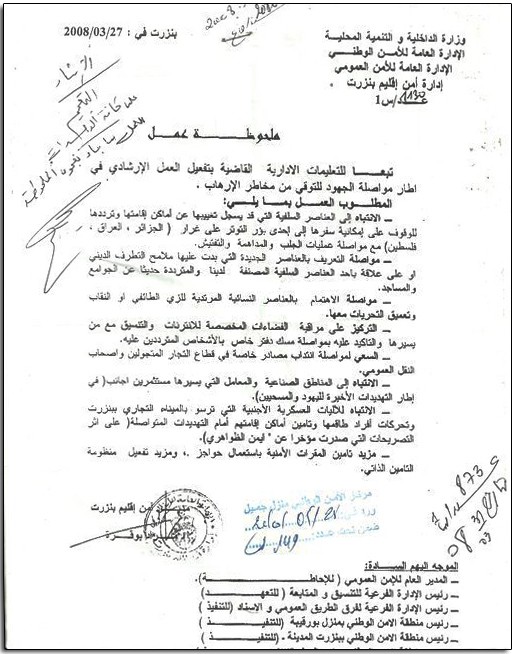 وزارة الداخلية و التنمية المحلية
الإدارة العامة للأمن الوطني
الإدارة العامة للأمن العمومي
إدارة أمن إقليم بنزرت
بنزرت في : 2008/03/27
ملحوظة عمل
تبعا للتعليمات الادارية القاضية بتفعيل العمل الإرشادي في
اطار مواصلة الجهود للتوقي من مخاطر الإرهاب .
المطلوب العمل بما يلي:
ــ الانتباه إلى العناصر السلفية التي قد يسجل تغيبها عن أماكن إقامتها وترددها
للوقوف على إمكانية سفرها إلى إحدى بؤر التوتر على غرار ( الجزائر ، العراق ،
فلسطين) مع مواصلة عمليات الجلب والمداهمة والتفتيش.
ــ مواصلة التعريف بالعناصر الجديدة التي بدت عليها ملامح التطرف الديني
او على علاقة باحد العناصر السلفية المصنفة لدينا والمترددة حديثا عن الجوامع
والمساجد.
ــ مواصلة الاهتمام بالعناصر النسائية المرتدية للزي الطائفي او النقاب
وتعميق التحريات معها.
ــ التركيز على مراقبة الفضاءات المخصصة للانترنات والتنسيق مع من
يسيرها والتاكيد عليه بمواصلة مسك دفتر خاص بالأشخاص المترددين عليه.
ــ السعي لمواصلة انتداب مصادر خاصة في قطاع التجار المتجولين واصحاب
النقل العمومي.
ــ الانتباه إلى المناطق الصناعية والمعامل التي يسيرها مستثمرين اجانب( في
إطار التهديدات الأخيرة لليهود والمسحيين).
ــ الانتباه للآليات العسكرية الأجنبية التي ترسو بالميناء التجاري ببنزرت
وتحركات أفراد طاقمها وتامين أماكن إقامتهم أمام التهديدات المتواصلة( على اثر
التصريحات التي صدرت مؤخرا عن "ايمن الظواهري).
ــ مزيد تامين المقرات الأمنية باستعمال حواجز .، ومزيد تفعيل منظومة
التامين الذاتي.
أمن إقليم بنزرت
مركز الأمن الوطني منزل جميل
الموجه اليهم السادة:
ــ المدير العام للامن العمومي ( للإحاطة).
ــ رئيس الإدارة الفرعية للتنسيق و المتابعة ( للتعهد)
ــ رئيس الإدارة الفرعية لفرق الطريق العمومي و الاسناد (للتنفيذ )
ــ رئيس منطقة الامن الوطني بمنزل بورقيبة ( للتنفيذ )
ــ رئيس منطقة الامن الوطني ببنزرت المدينة ـ (للتنفيذ )